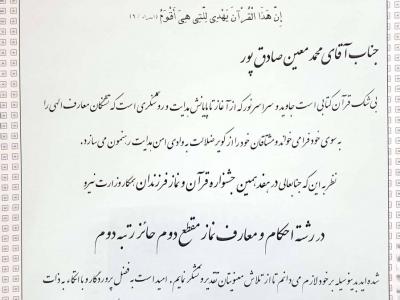 إِنَّ هَذَا الْقُرْآنَ يَهْدِي لِلَّتِي هِيَ أَقْوَمُ (اسراء / ۹)
جناب آقای محمد معین صادق پور
بی شک قرآن کتابی است جاوید و سراسر نور که از آغاز تا پایانش هدایت و روشنگری است که تشنگان معارف الهی را
به سوی خود فرامی خواند و مشتاقان خود را از کویر ضلالت به وادی امن هدایت رهنمون می سازد.
نظر به این که جنابعالی در هفدهمین جشنواره قرآن و نماز فرزندان همکار وزارت نیرو
در رشته احکام و معارف نماز مقطع دوم حائز رتبه دوم
شده اید بدینوسیله بر خود لازم می دانم تا از تلاش معنویتان تقدیر و تشکر نمایم. امید است به فضل پروردگار و با اتکاء به ذات